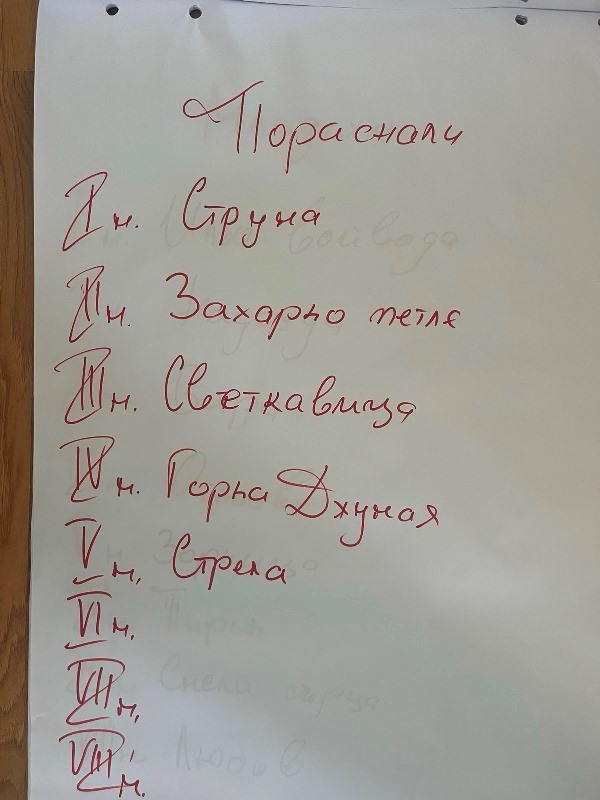 Пораснали
I м. Струна
II м. Захарно петле
III м. Светкавица
IV м. Горна Джуная
V м. Стрела
VI м.
VII м.
VIII м.